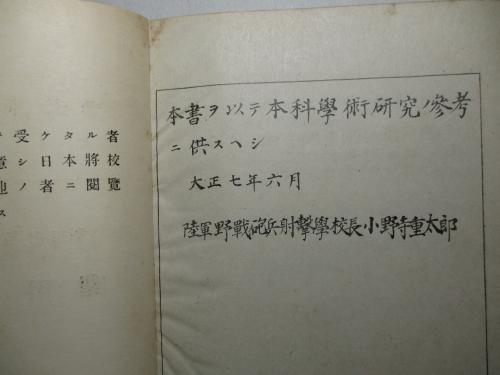 本書ヲ以テ本科學術研究ノ參考
ニ供スヘシ
大正七年六月
陸軍野戰砲兵射擊學校長小野寺重太郎
受ケタル者
シ日本將校
ノ者ニ閱覽
ス